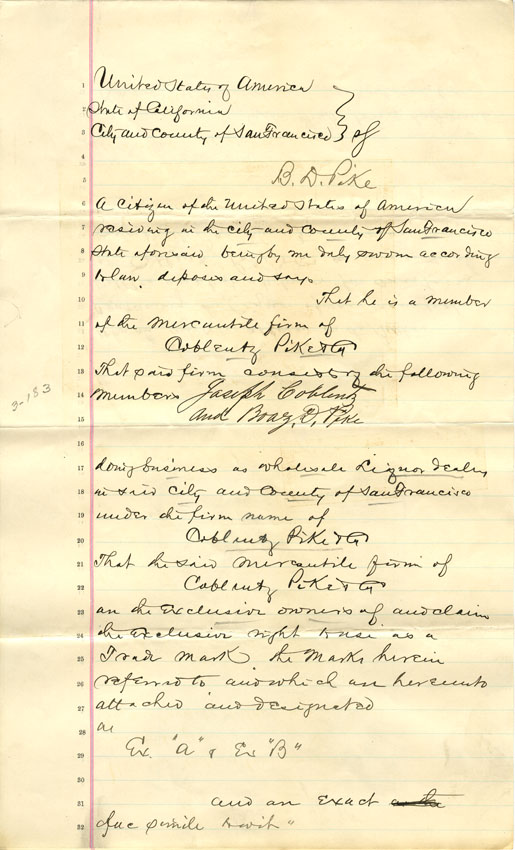 1 United States of America
2 State of California
3 City and County of San Francisco } ss
4
5 B. D. Pike
6 A citizen of the United States of America
7 residing in the city and county of San Francisco
8 State aforesaid, being by me duly sworn according
9 to law, deposes and says
10 That he is a member
11 of the Mercantile firm of
12 Coblentz Pike & Co
13 That said firm consists of the following
14 members Joseph Coblentz
15 and Boaz D. Pike
16
17 doing business as wholesale Liquor dealers
18 in said City and County of San Francisco
19 under the firm name of
20 Coblentz Pike & Co
21 That the said Mercantile firm of
22 Coblentz Pike & Co
23 are the Exclusive owners of and claim
24 the exclusive right to use as a
25 Trade Mark, the Marks herein
26 referred to and which are hereunto
27 attached and designated
28 as
29 Ex. "A" & Ex "B"
30
31 and are exact
32 fac simile to wit"
3-183